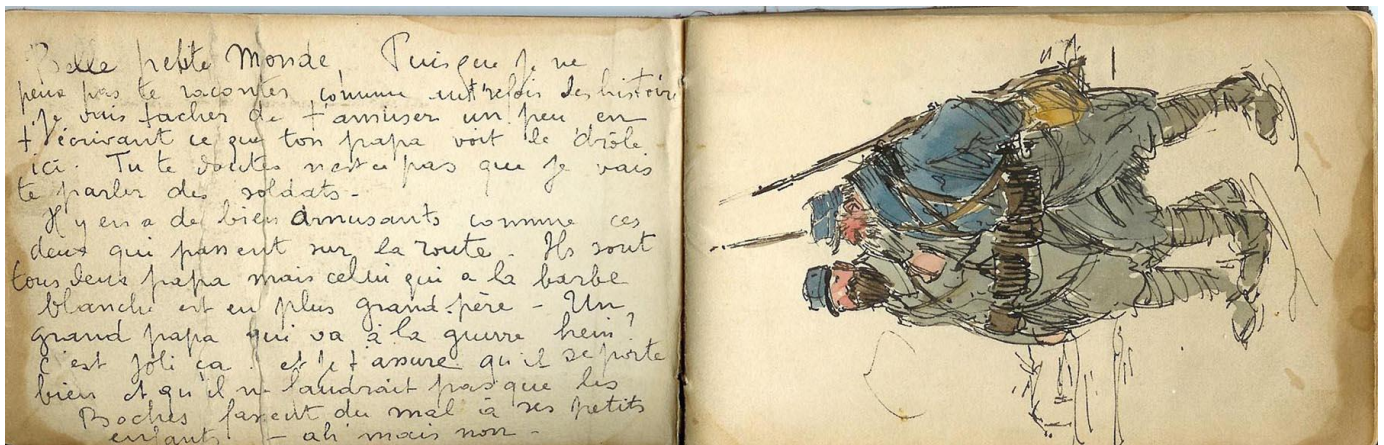 Belle petite Monde, Puisque je ne
peux pas te raconter comme autrefois des histoires
je vais tacher de t'amuser un peu en
t'écrivant ce que ton papa voit de drôle
ici. Tu te doutes n'est ce pas que je vais
te parler des soldats -
Il y en a de bien amusants comme ces
deux qui passent sur la route. Ils sont
tous deux papa mais celui qui a la barbe
blanche est en plus grand-père - Un
grand papa qui va à la guerre hein?
c'est joli ça. et je t'assure qu'il se porte
bien et qu'il ne faudrait pas que les
Boches fassent du mal à ses petits
enfants - ah mais non -